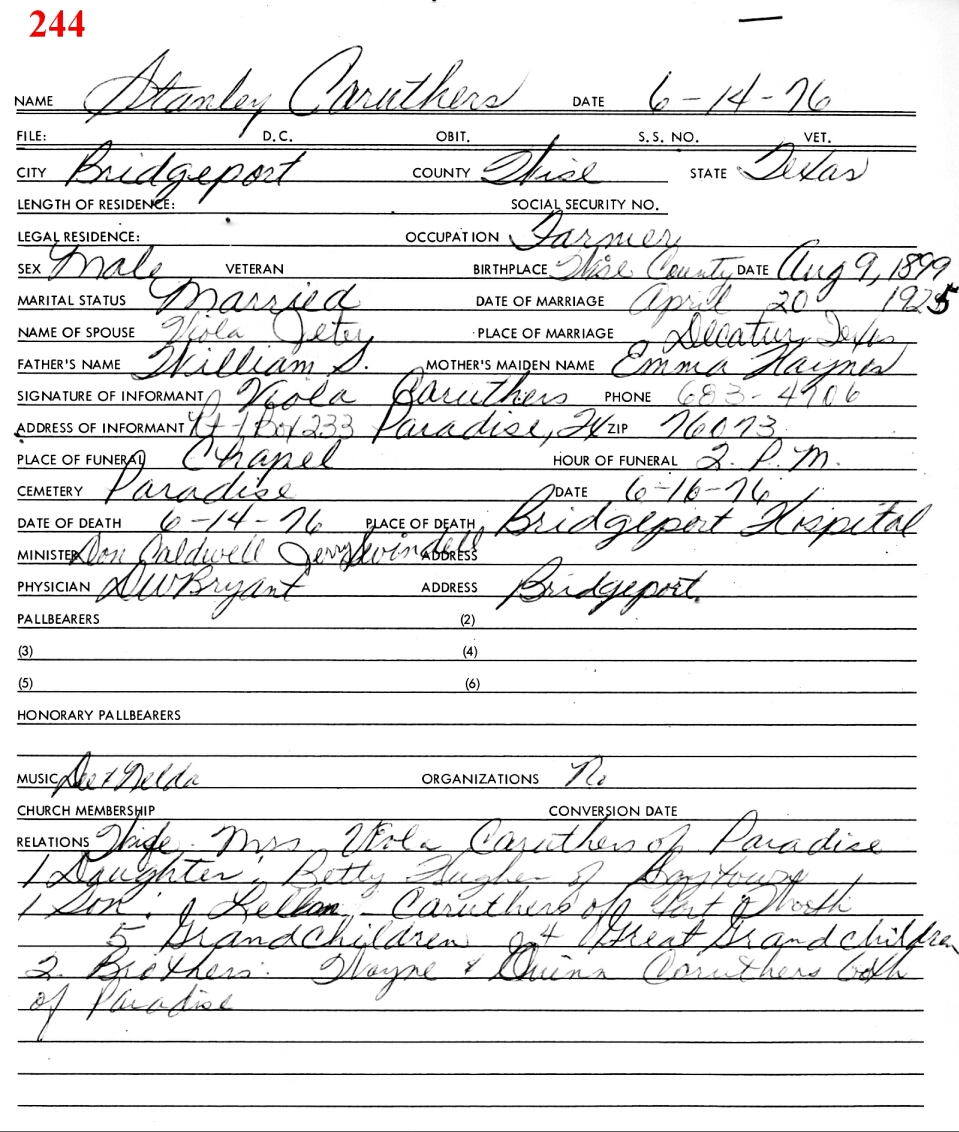 244
NAME Stanley Caruthers DATE 6-14-76
FILE: D.C. OBIT. S.S. NO. VET.
CITY Bridgeport COUNTY Wise STATE Texas
LENGTH OF RESIDENCE: SOCIAL SECURITY NO.
LEGAL RESIDENCE: OCCUPATION Farmer
SEX Male VETERAN BIRTHPLACE Wise County DATE Aug 9, 1899
MARITAL STATUS Married DATE OF MARRIAGE April 20 1925
NAME OF SPOUSE Viola Jeter PLACE OF MARRIAGE Decatur, Texas
FATHER'S NAME William S. MOTHER'S MAIDEN NAME Emma Haynes
SIGNATURE OF INFORMANT Viola Caruthers PHONE 683-4906
ADDRESS OF INFORMANT Rt-1 Box 233 Paradise, Tx ZIP 76073
PLACE OF FUNERAL Chapel HOUR OF FUNERAL 2. P.M.
CEMETERY Paradise DATE 6-16-76
DATE OF DEATH 6-14-76 PLACE OF DEATH Bridgeport Hospital
MINISTER Don Caldwell Jerry Swindell ADDRESS
PHYSICIAN DW Bryant ADDRESS Bridgeport
PALLBEARERS (2)
(3) (4)
(5) (6)
HONORARY PALLBEARERS
MUSIC Dee & Nelda ORGANIZATIONS No
CHURCH MEMBERSHIP CONVERSION DATE
RELATIONS Wife. Mrs Viola Caruthers of Paradise
1 Daughter, Betty Hughes of Baytown
1 Son: Caruthers of Fort Worth
5 Grandchildren 4 Great Grandchildren
2 Brothers: Wayne & Quinn Caruthers both
of Paradise